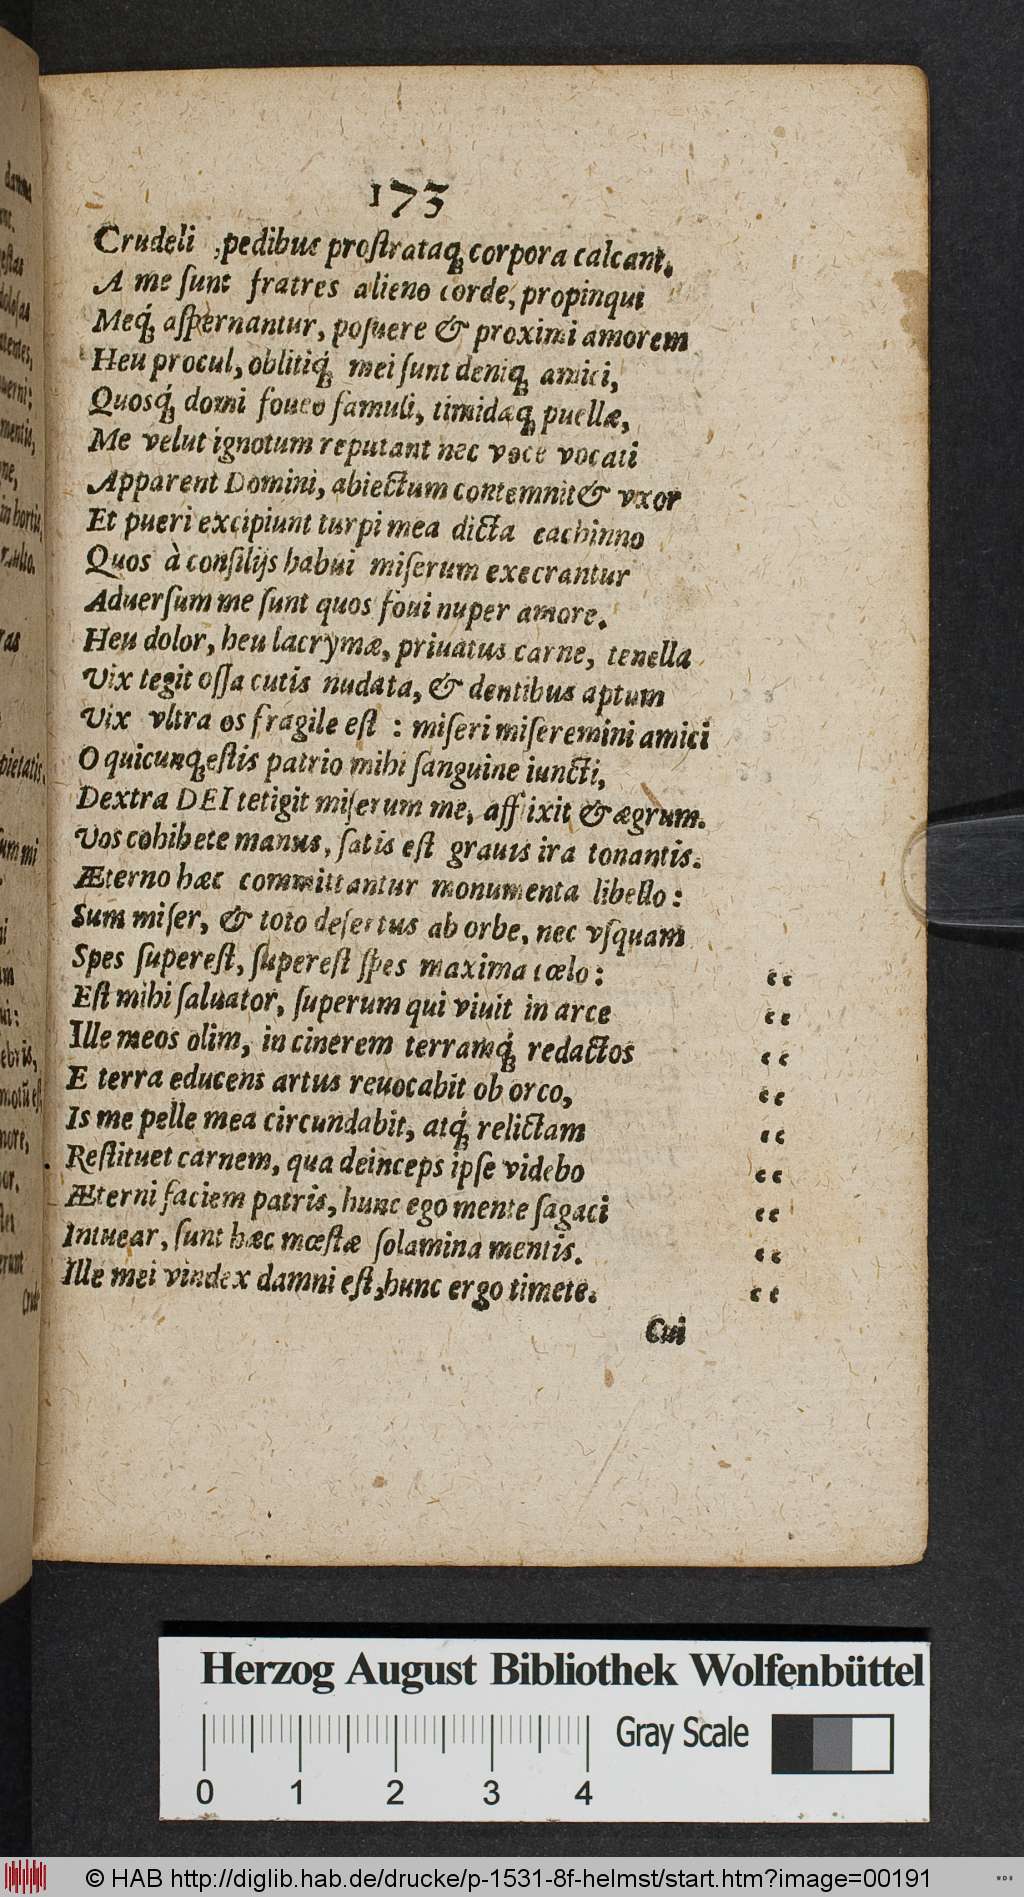 173
Crudeli pedibus prostrataq́; corpora calcant.
A me sunt fratres alieno corde, propinqui
Meq́; aspernantur, posuere & proximi amorem
Heu procul, oblitiq́; mei sunt deniq; amici,
Quosq́; domi foueo famuli, timidæq; puellæ,
Me velut ignotum reputant nec voce vocati
Apparent Domini, abiectum contemnit & vxor
Et pueri excipiunt turpi mea dicta cachinno
Quos à consilijs habui miserum execrantur
Aduersum me sunt quos foui nuper amore.
Heu dolor, heu lacrymæ, priuatus carne, tenella
Vix tegit ossa cutis nudata, & dentibus aptum
Vix vltra os fragile est : miseri miseremini amici
O quicunq; estis patrio mihi sanguine iuncti,
Dextra DEI tetigit miserum me, affixit & ægrum.
Vos cohibete manus, satis est grauis ira tonantis.
Æterno hæc committantur monumenta libello:
Sum miser, & toto desertus ab orbe, nec vsquam
Spes superest, superest spes maxima cœlo: “
Est mihi saluator, superum qui viuit in arce “
Ille meos olim, in cinerem terramq́; redactos “
E terra educens artus reuocabit ob orco, “
Is me pelle mea circundabit, atq́; relictam “
Restituet carnem, qua deinceps ipse videbo “
Æterni faciem patris, hunc ego mente sagaci “
Intuear, sunt hæc mœstæ solamina mentis. “
Ille mei vindex damni est, hunc ergo timete. “
Cui
Herzog August Bibliothek Wolfenbüttel
Gray Scale
0 1 2 3 4
© HAB http://diglib.hab.de/drucke/p-1531-8f-helmst/start.htm?image=00191